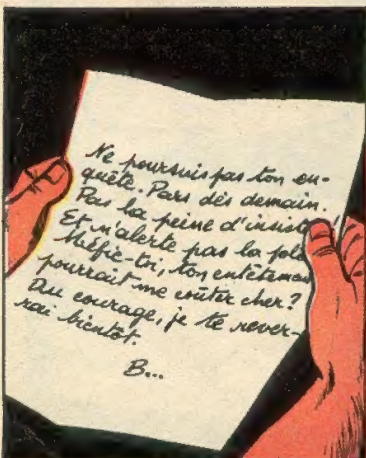 Ne poursuis pas ton en-
quête. Pars dès demain.
Pas la peine d'insist
Et n'alerte pas la pol
Méfie-toi, ton entêtemen
pourrait me coûter cher?
Du courage, je te rever-
rai bientôt.
B...